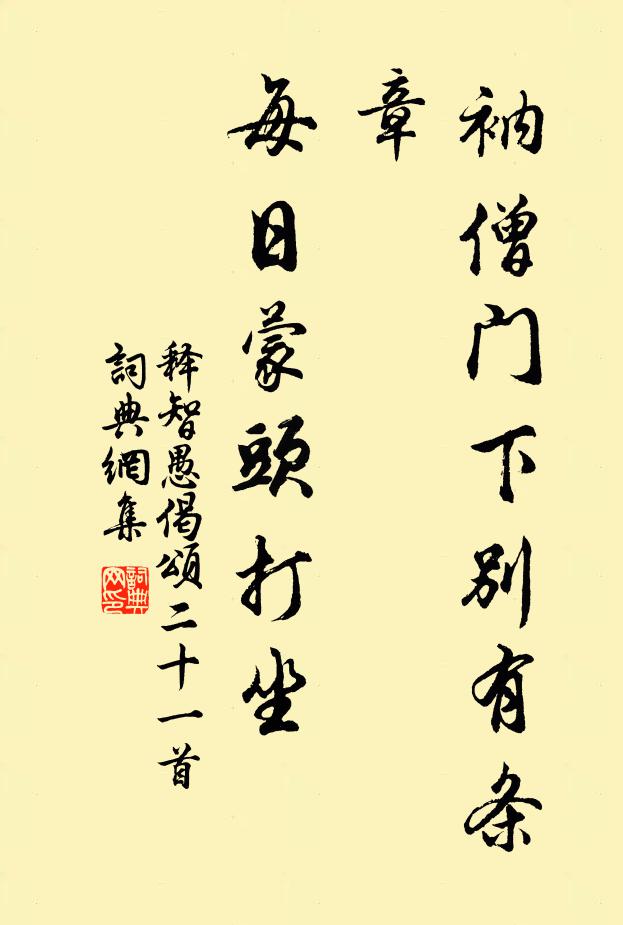 衲僧門下别有条
章
每日蒙頭打坐
释智愚偈頌二十一首
詞典網集
詞典
网印